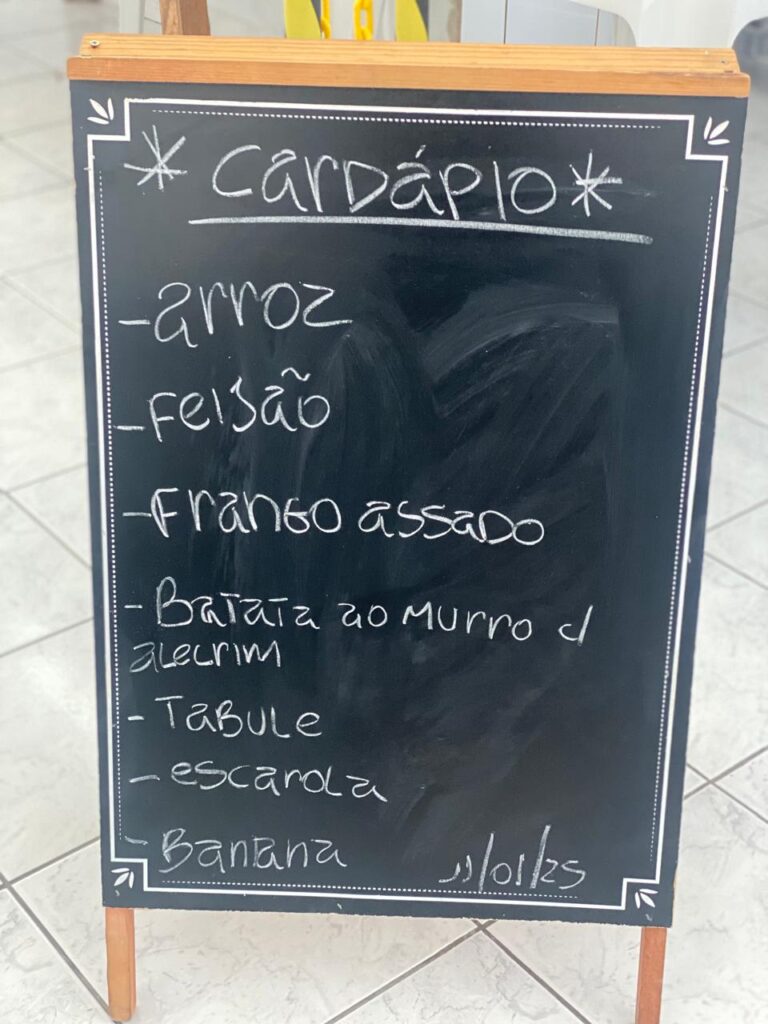 * Cardápio *
- arroz
- Feijão
- Frango assado
- Batata ao murro c/
alecrim
- Tabule
- escarola
- Banana 11/01/25